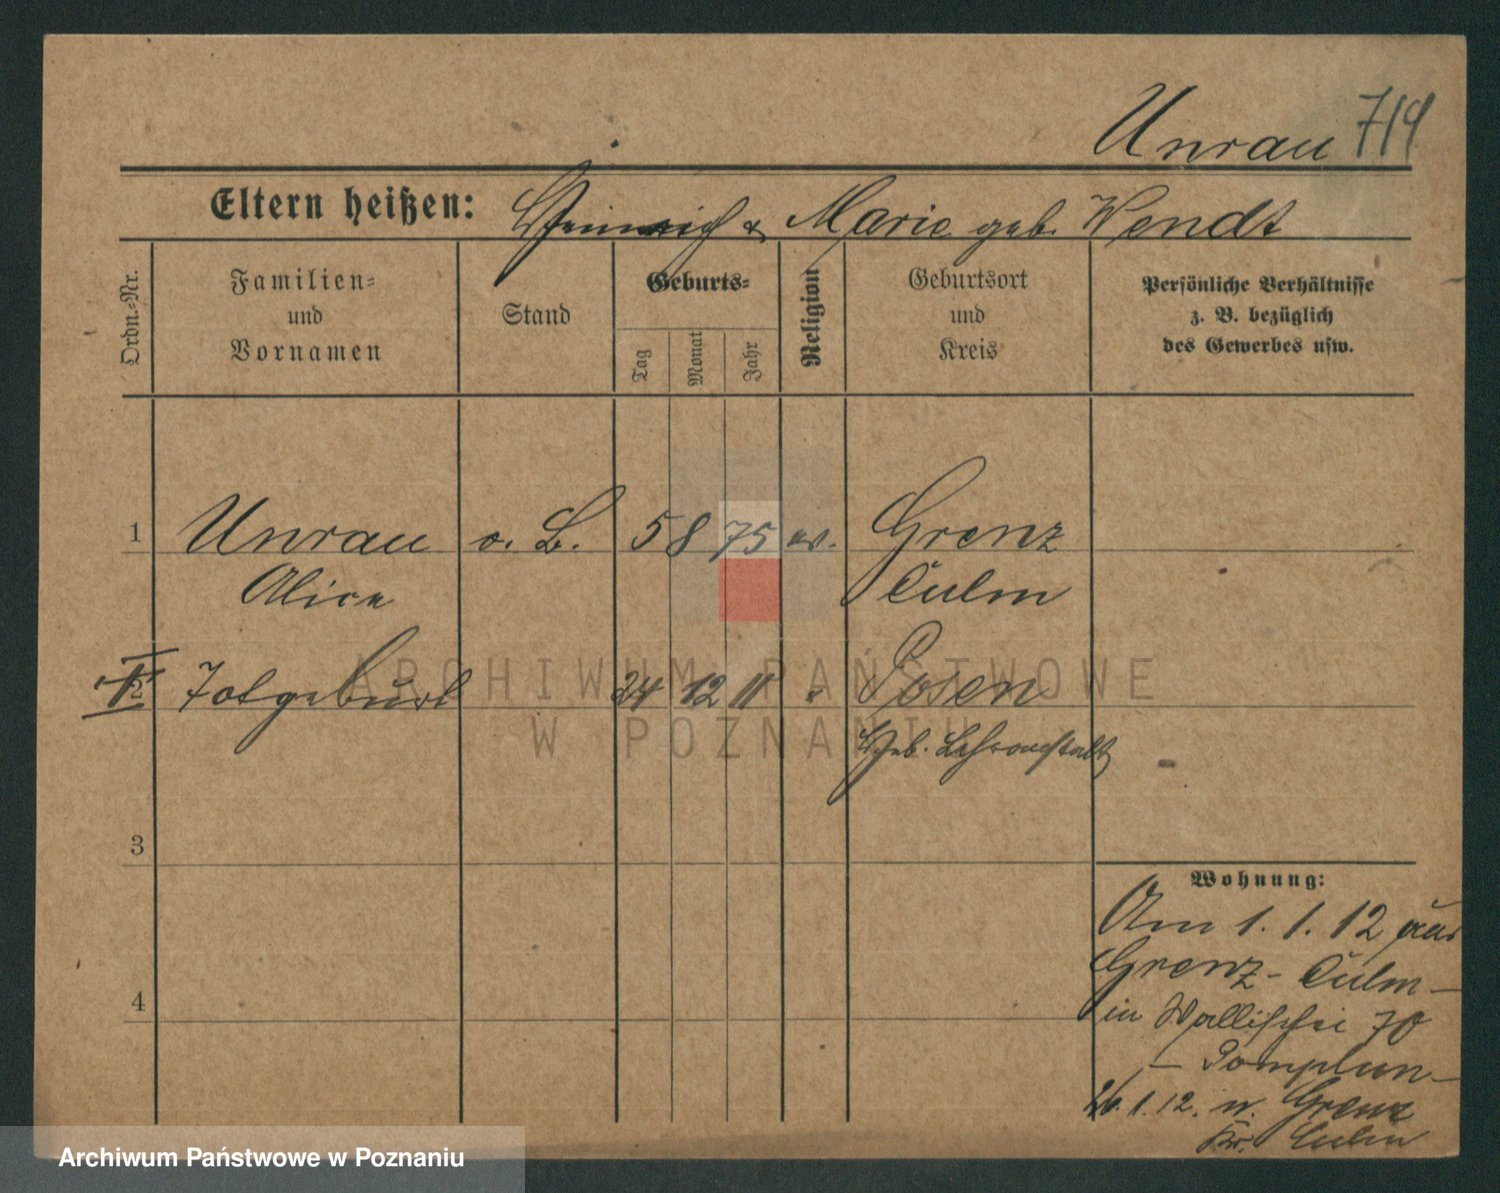 Unrau 714
Eltern heißen: Heinrich & Marie geb. Wendt
Ordn.-Nr.
Familien- und Vornamen
Stand
Geburts-
Tag
Monat
Jahr
Religion
Geburtsort und Kreis
Persönliche Verhältnisse z. B. bezüglich des Gewerbes usw.
1 Unrau o. B. 5 8 75 ev. Grenz
Alice Culm
2 Totgeburt 24 12 11 " Posen
Heb. Lehranstalt
3
4
Wohnung:
Am 1. 1. 12 aus
Grenz - Culm -
in Wallischei 70
- Pomplun -
26.1.12. n. Grenz
Kr. Culm
ARCHIWUM PAŃSTWOWE
W POZNANIU
Archiwum Państwowe w Poznaniu